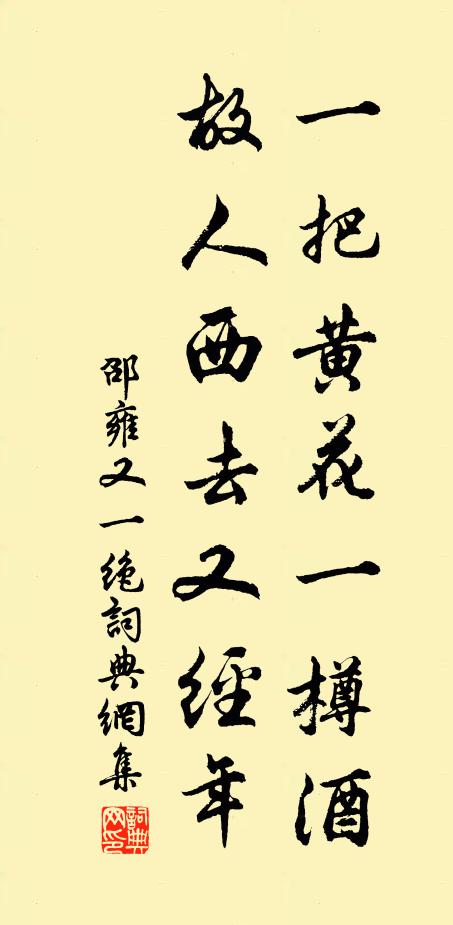 一把黄花一樽酒
故人西去又經年
邵雍又一絶詞典網集
詞典網印